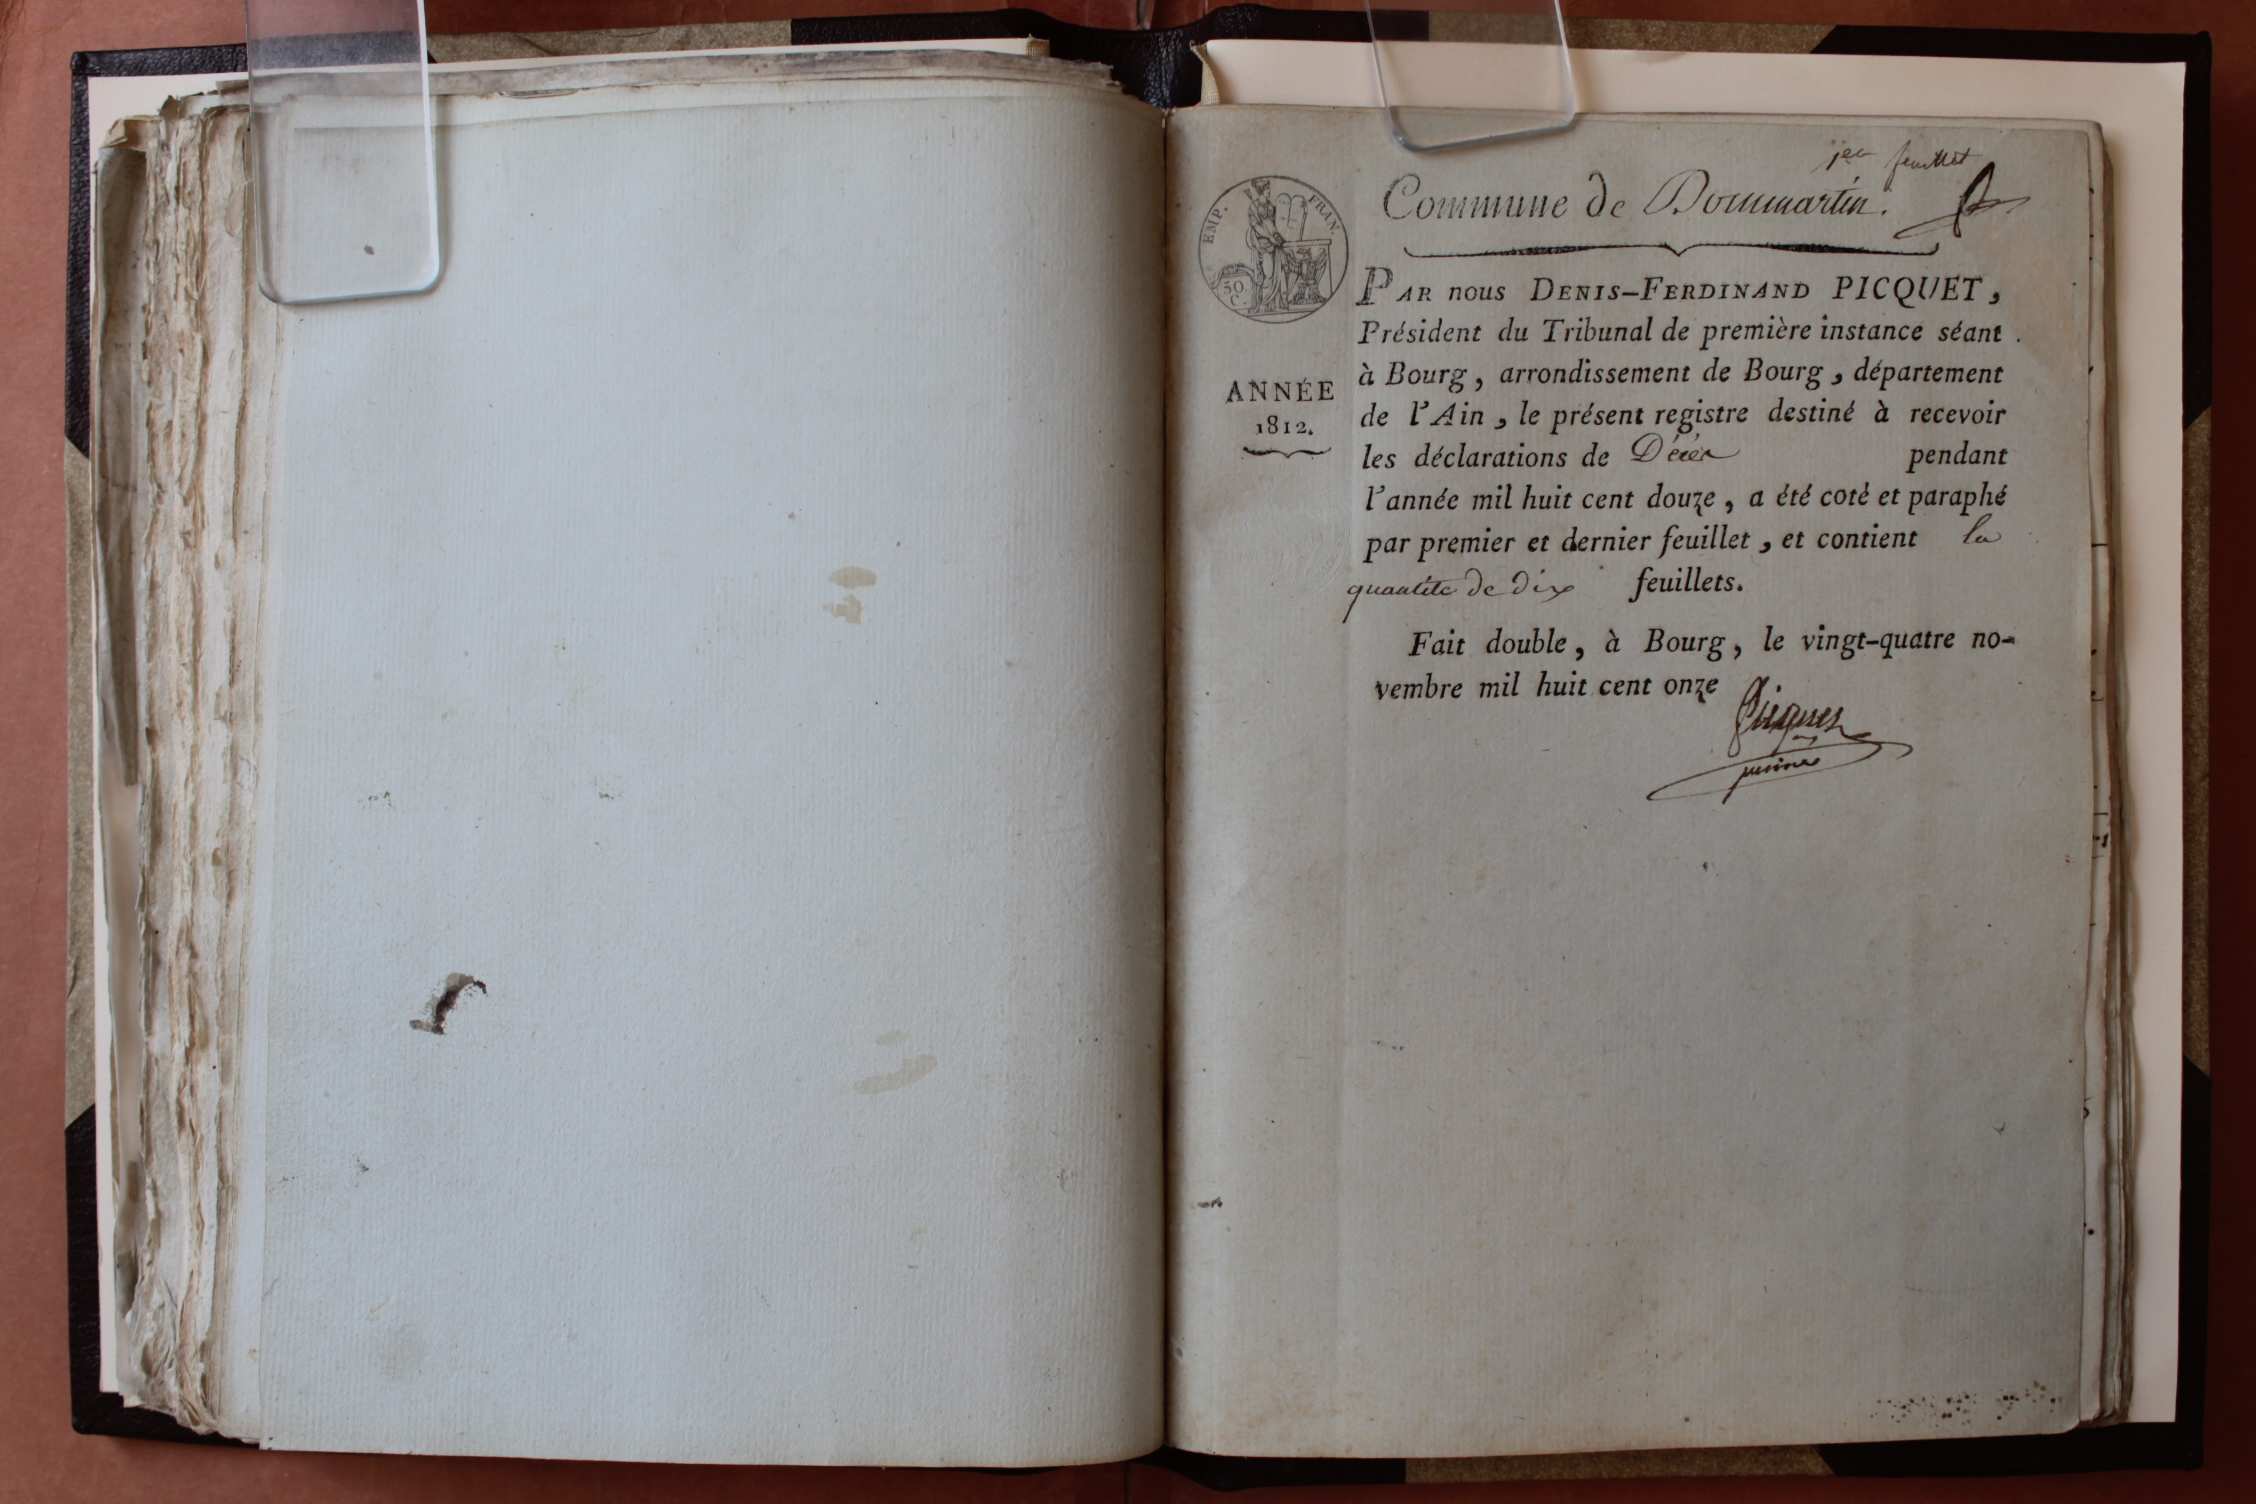 1er feuillet
Commune de Dommartin.
EMP. FRAN.
50.
C.
PAR nous DENIS-FERDINAND PICQUET,
Président du Tribunal de première instance séant
ANNÉE
1812.
à Bourg, arrondissement de Bourg, département
de l'Ain, le présent registre destiné à recevoir
les déclarations de Décès pendant
l'année mil huit cent douze, a été coté et paraphé
par premier et dernier feuillet, et contient la
quantité de dix feuillets.
Fait double, à Bourg, le vingt-quatre no-
vembre mil huit cent onze
Picquet